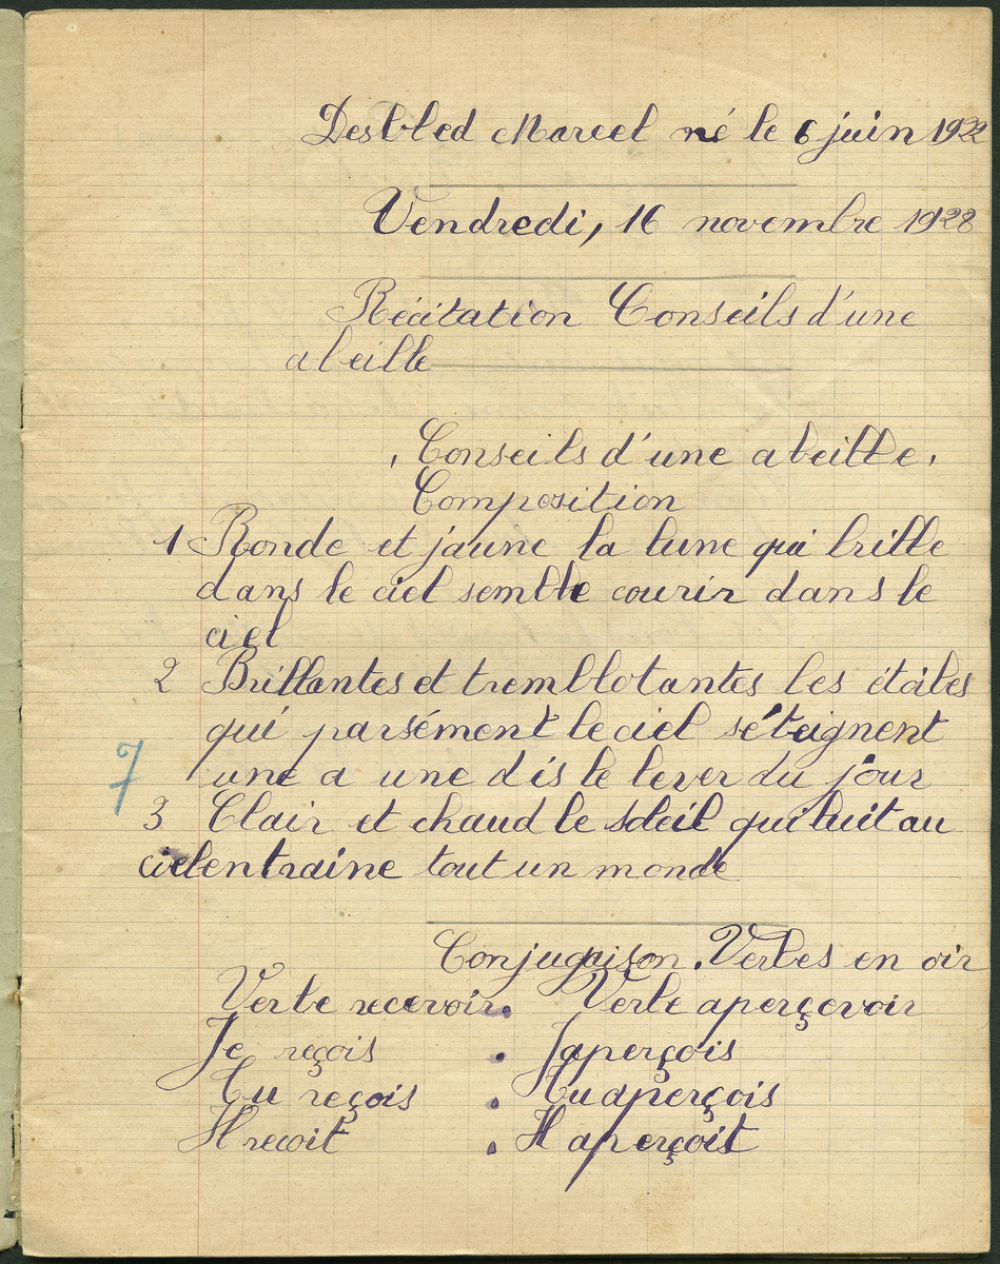 Desbled Marcel né le 6 juin 1922
Vendredi, 16 novembre 1928
Récitation Conseils d'une
abeille
Conseils d'une abeille.
Composition
1 Ronde et jaune la lune qui brille
dans le ciel semble courir dans le
ciel
2 Brillantes et tremblotantes les étoiles
qui parsément le ciel s'éteignent
7
une a une dis le lever du jour
3 Clair et chaud le soleil qui luit au
ciel entraine tout un monde
Conjugaison. Verbes en oir
Verbe recevoir. Verbe aperçevoir
Je reçois . Japerçois
Tu reçois . Tu aperçois
Il recoit . Il aperçoit